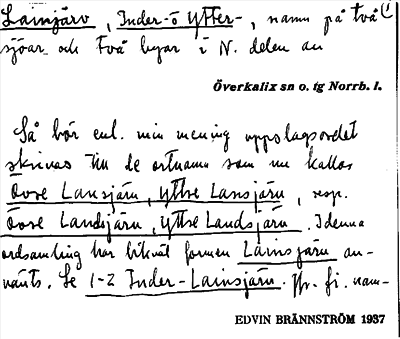 Lainsjärv, Inder- o Ytter-, namn på två
sjöar och två byar i N. delen av
Överkalix sn o. tg Norrb. l.
Så bör enl. min mening uppslagsordet
skrivas till de ortnamn som nu kallas
Övre Lansjärv, Yttre Lansjärv, resp.
Övre Landsjärv, Yttre Landsjärv. I denna
ordsamling har likväl formen Lainsjärv an-
vänts. Se 1-2 Inder-Lainsjärv. fi. nam-
EDVIN BRÄNNSTRÖM 1937